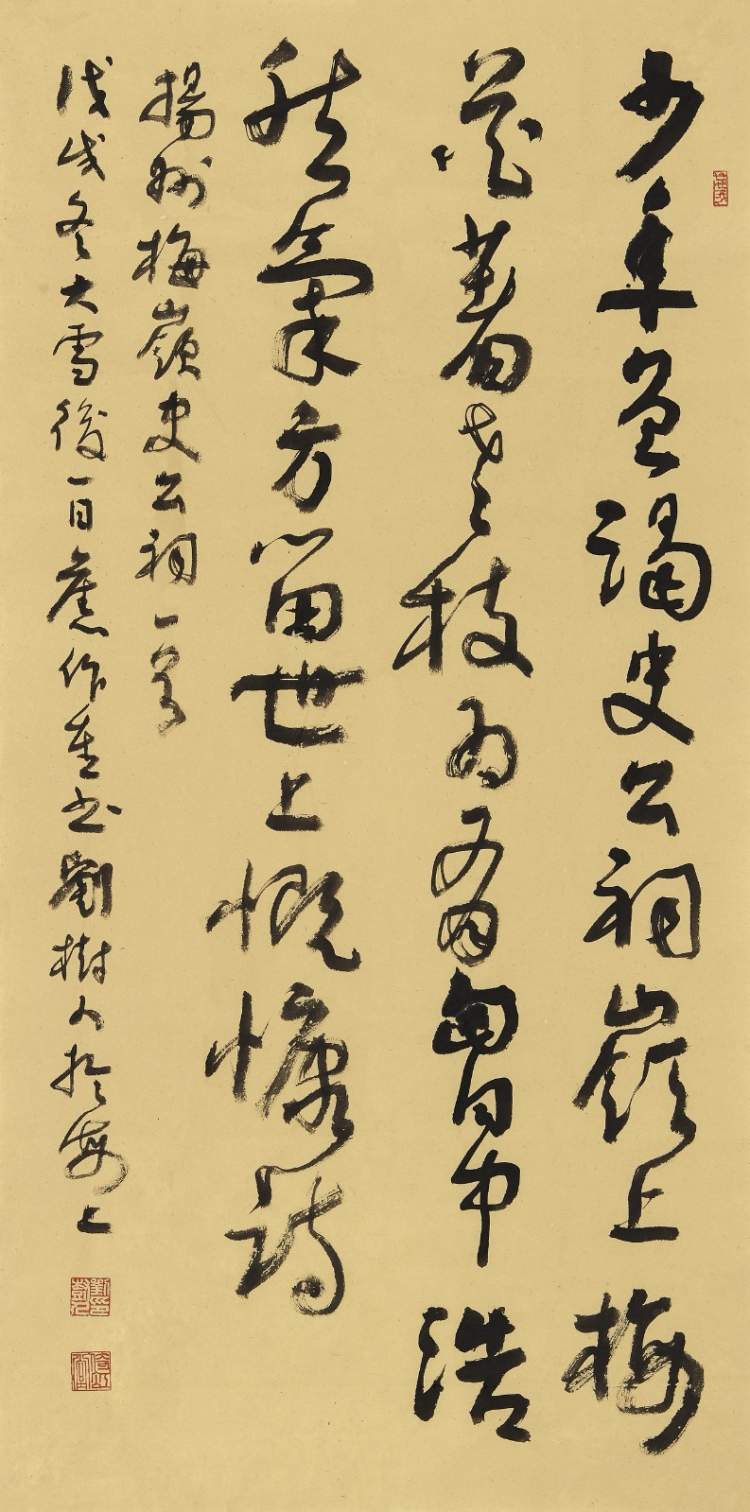 少年曾謁史公祠嶺上梅
花著老枝為有胸中浩
然氣方留世上慨慷詩
揚州梅嶺史公祠一首
戊戌冬大雪後一日舊作重書劉樹人於海上